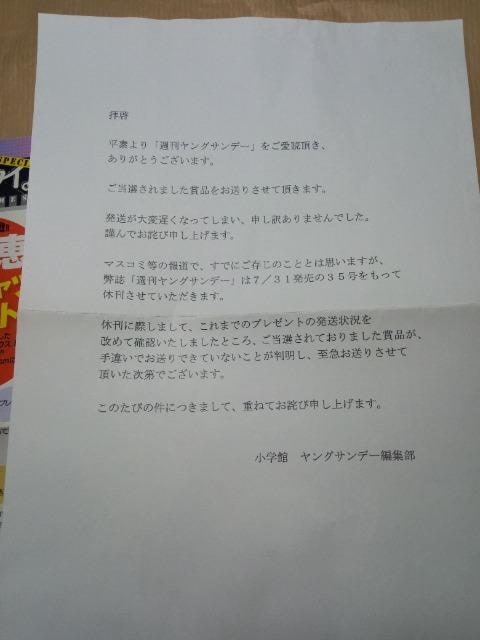 拝啓
平素より「週刊ヤングサンデー」をご愛読頂き、
ありがとうございます。
ご当選されました賞品をお送りさせて頂きます。
発送が大変遅くなってしまい、申し訳ありませんでした。
謹んでお詫び申し上げます。
マスコミ等の報道で、すでにご存じのこととは思いますが、
弊誌「週刊ヤングサンデー」は7/31発売の35号をもって
休刊させていただきます。
休刊に際しまして、これまでのプレゼントの発送状況を
改めて確認いたしましたところ、ご当選されておりました賞品が、
手違いでお送りできていないことが判明し、至急お送りさせて
頂いた次第でございます。
このたびの件につきまして、重ねてお詫び申し上げます。
小学館　ヤングサンデー編集部
SPECI
恵